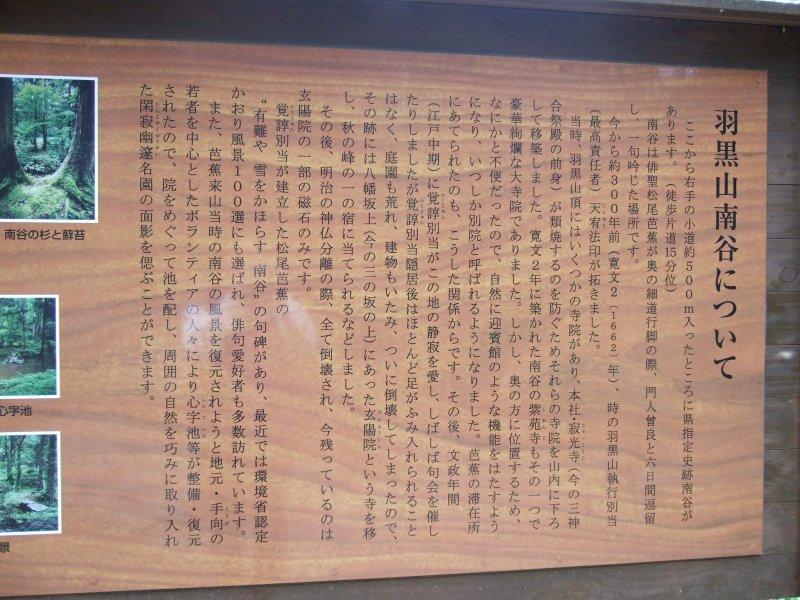 羽黒山南谷について
ここから右手の小道約500m入ったところに県指定史跡南谷が
あります。（徒歩片道15分位）
南谷は俳聖松尾芭蕉が奥の細道行脚の際、門人曾良と六日間逗留
し、一句吟じた場所です。
今から約300年前（寛文2〔1662〕年）、時の羽黒山執行別当
（最高責任者）天宥法印が拓きました。
当時、羽黒山頂にはいくつかの寺院があり、本社・寂光寺（今の三神
合祭殿の前身）が類焼するのを防ぐためそれらの寺院を山内に下ろ
して移築しました。寛文2年に築かれた南谷の紫苑寺もその一つで
豪華絢爛な大寺院でありました。しかし、奥の方に位置するため、
なにかと不便だったので、自然に迎賓館のような機能をはたすよう
になり、いつしか別院と呼ばれるようになりました。芭蕉の滞在所
にあてられたのも、こうした関係からです。その後、文政年間
（江戸中期）に覚諄別当がこの地の静寂を愛し、しばしば句会を催し
たりしましたが覚諄別当隠居後はほとんど足がふみ入れられること
はなく、庭園も荒れ、建物もいたみ、ついに倒壊してしまったので、
その跡には八幡坂上（今の三の坂の上）にあった玄陽院という寺を移
し、秋の峰の一の宿に当てられるなどしました。
その後、明治の神仏分離の際、全て倒壊され、今残っているのは
玄陽院の一部の磁石のみです。
覚諄別当が建立した松尾芭蕉の
“有難や 雪をかほらす 南谷”の句碑があり、最近では環境省認定
かおり風景100選にも選ばれ、俳句愛好者も多数訪れています。
また、芭蕉来山当時の南谷の風景を復元されようと地元・手向の
若者を中心としたボランティアの人々により心字池等が整備・復元
されたので、院をめぐって池を配し、周囲の自然を巧みに取り入れ
た閑寂幽邃名園の面影を偲ぶことができます。
南谷の杉と蘚苔
心字池
景